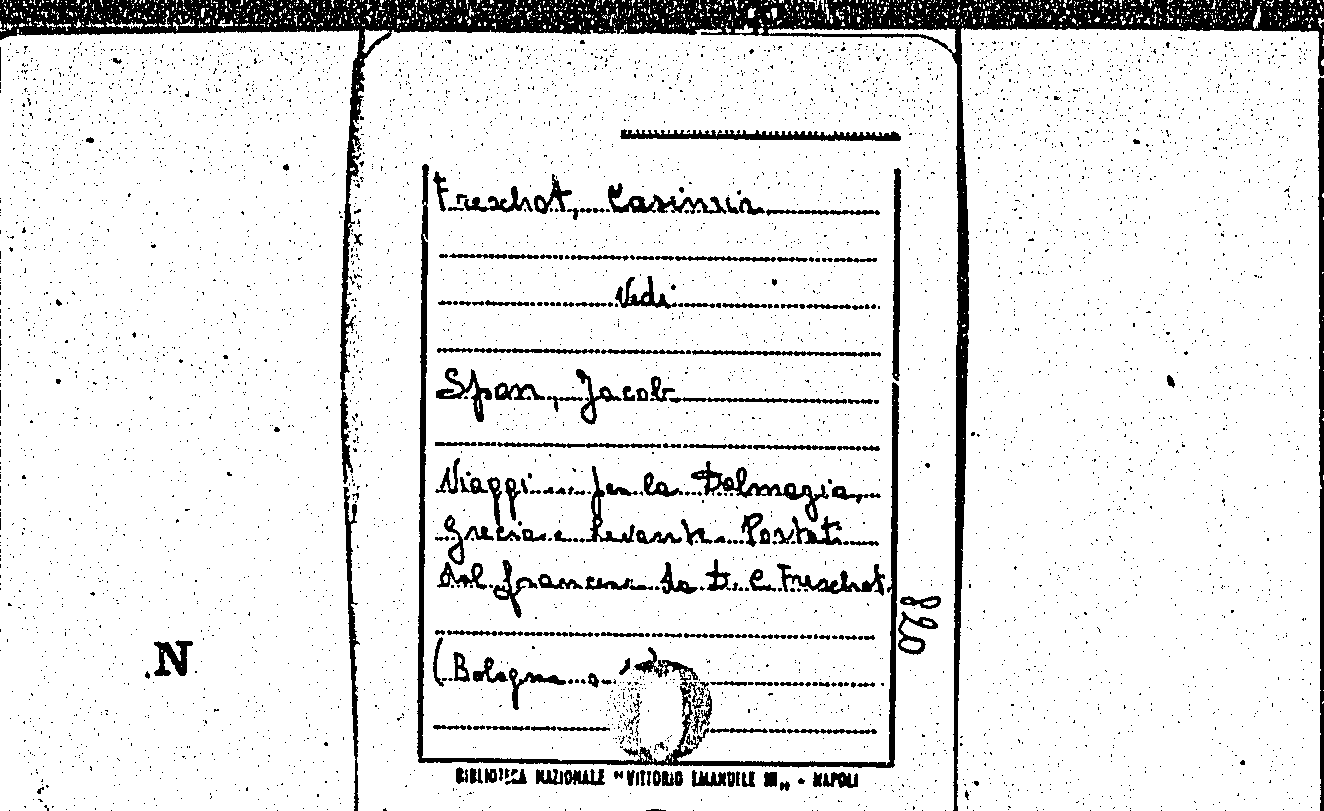 Freschot, Casimir
Vedi
Spon, Jacob
Viaggi ... per la Dalmazia,
Grecia e Levante. Portati
dal francese da D. C. Freschot.
820
(Bologna
N
BIBLIOTECA NAZIONALE "VITTORIO EMANUELE III„ - NAPOLI